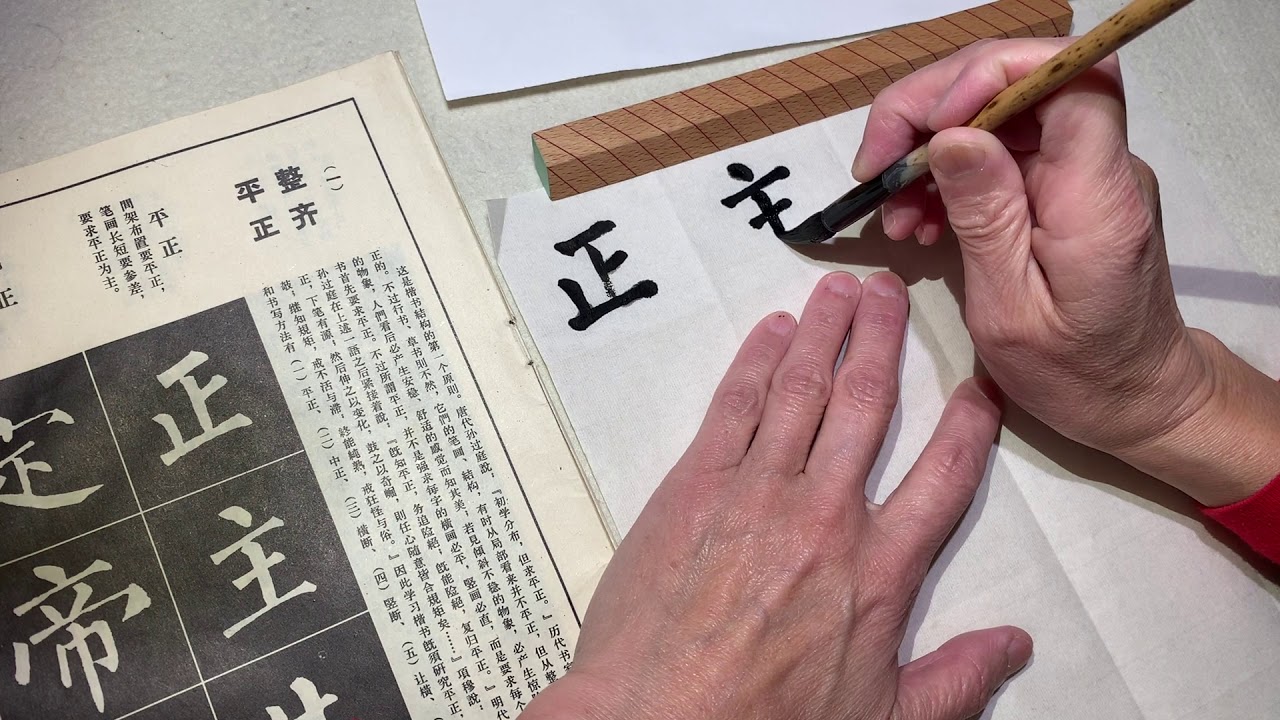 （一）
整齐
平正
平正
間架布置要平正，
笔画长短要参差，
要求平正为主。
正
这是楷书結构的第一个原则。唐代孙过庭說，『初学分布，但求平正。』历代书
正的。不过行书、草书則不然，它們的笔画、結构，有时从局部看来并不平正，但从整
的物象，人們看后必产生安稳、舒适的感觉而知其美，若見傾斜不稳的物象，必产生惊
书首先要求平正。不过所謂平正，并不是强求每字的橫画必平，竪画必直，而是要求每
孙过庭在上述一語之后紧接着說，『既知平正，务追险絕，既能险絕，复归平正。』明代
正，下笔有源。然后伸之以变化，鼓之以奇崛，則任心随意皆合規矩矣……』項穆說，
继知規矩，戒不活与滞，終能純熟，戒狂怪与俗。』因此学习楷书既須研究平正，
和书写方法有（一）平正、（二）中正、（三）橫断、（四）竪断、（五）让橫、
正
主
定
帝
正
主